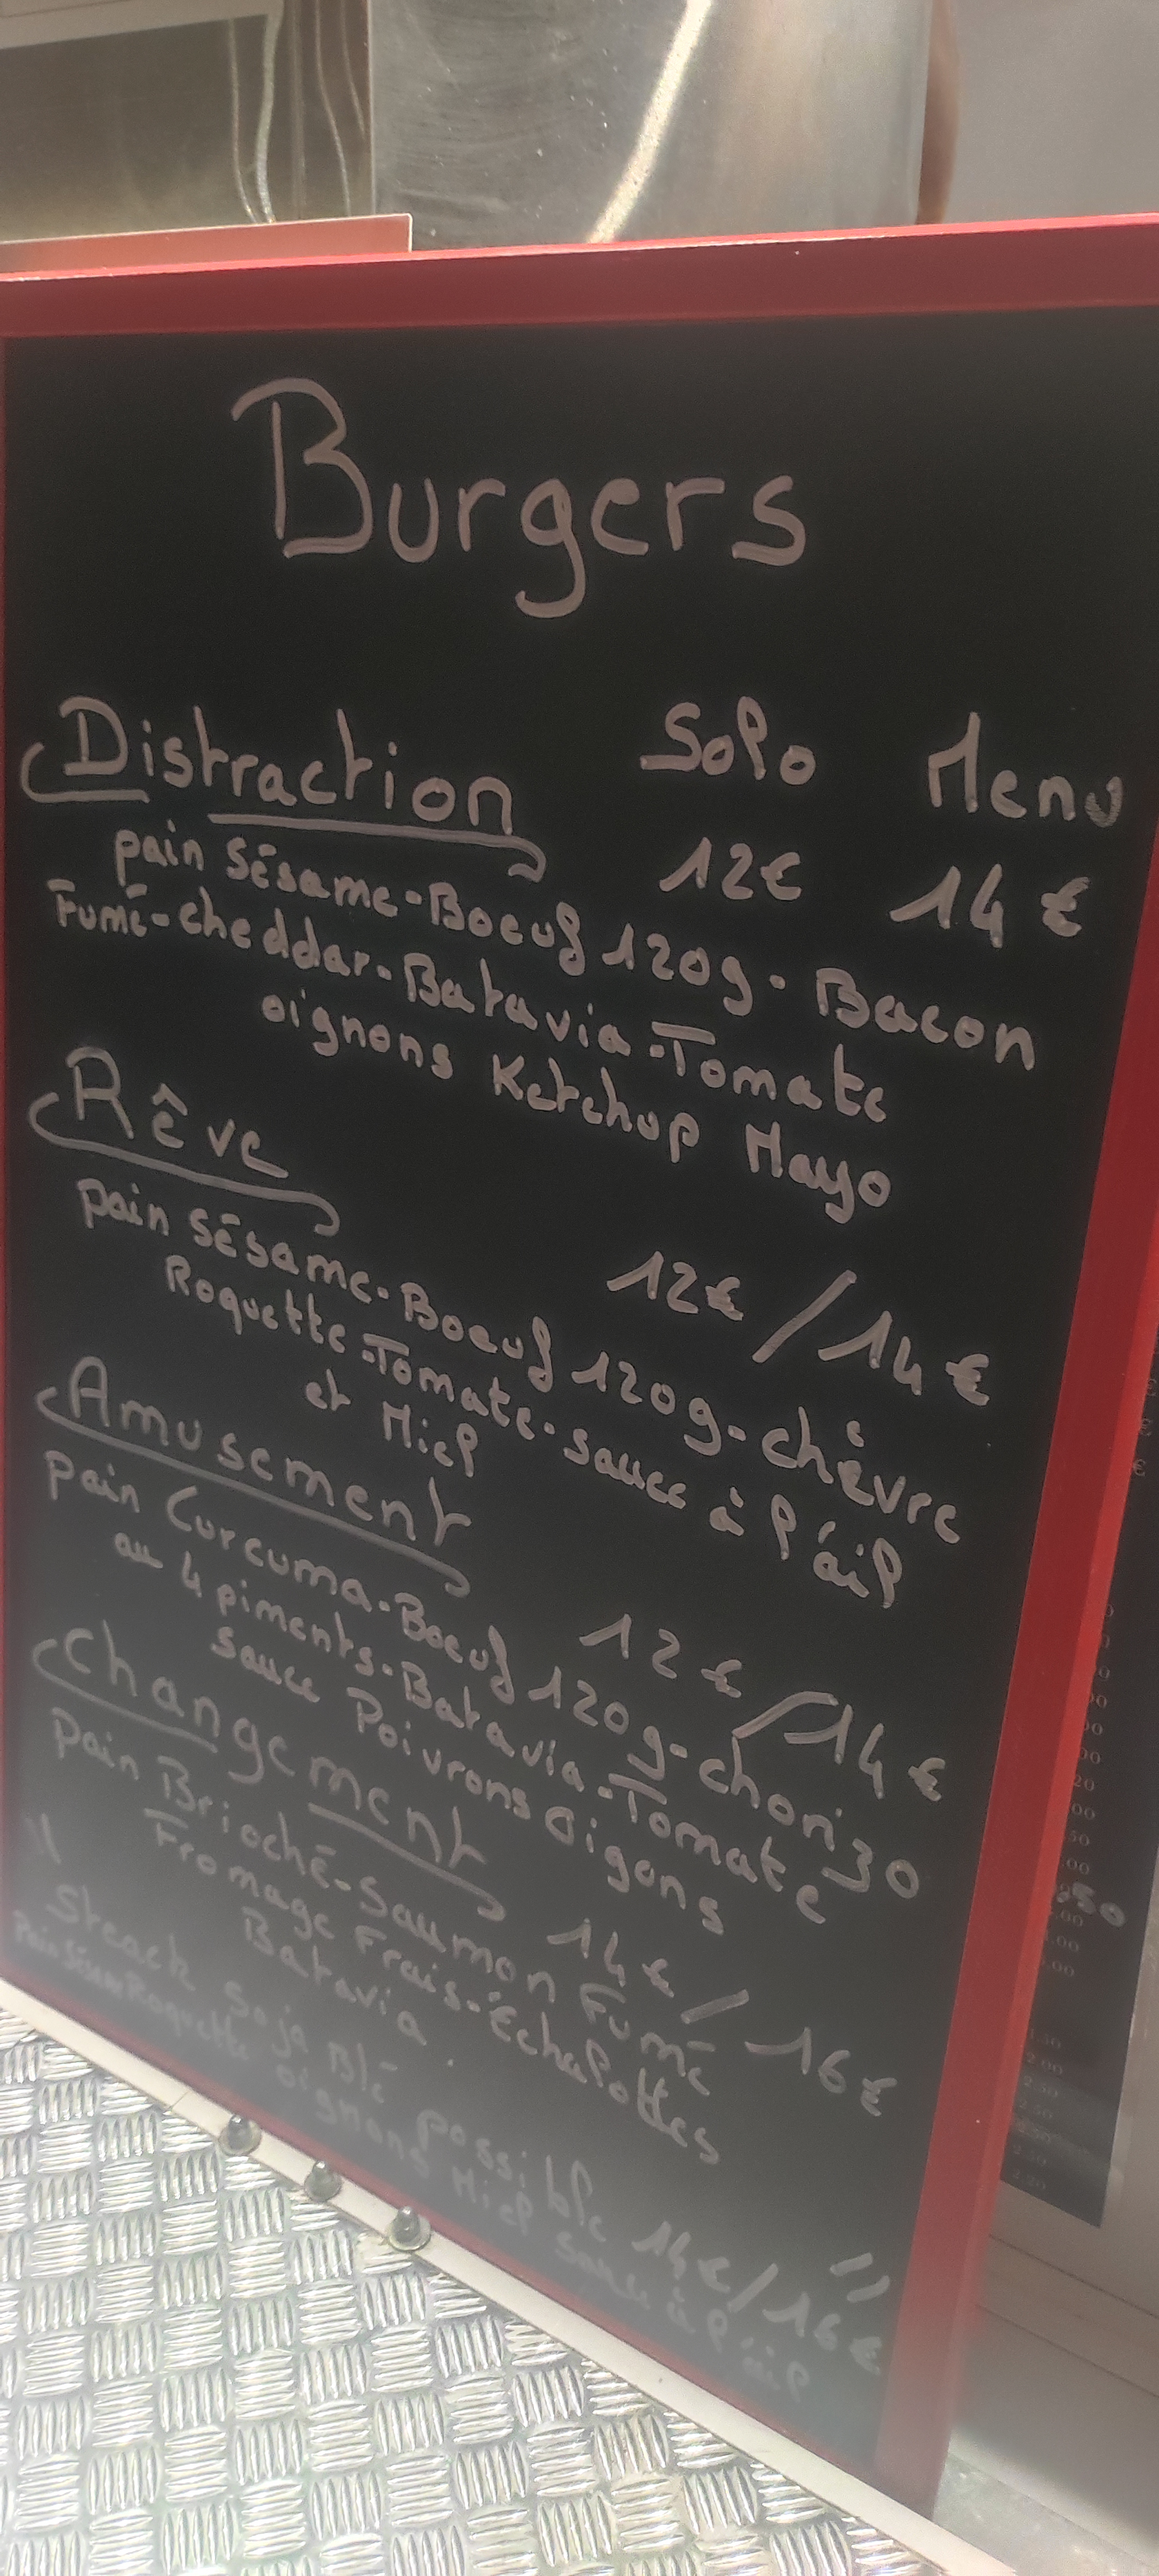 Burgers
Distraction Solo Menu
12€ 14€
pain Sésame-Boeuf 120g-Bacon
Fumé-cheddar-Batavia-Tomate
oignons Ketchup Mayo
Rêve 12€/14€
pain Sésame-Boeuf 120g-chèvre
Roquette-Tomate-sauce à l'ail
et Miel
Amusement 12€/14€
pain Curcuma-Boeuf 120g-chorizo
au 4 piments-Batavia-Tomate
sauce Poivrons Oigons
Changement 14€/16€
pain Brioché-Saumon Fumé
Fromage Frais-Échalottes
Batavia
\\ Steack Soja Blé possible 14€/16€ //
Pain Sésam Roquette oignons Miel sauce à l'ail